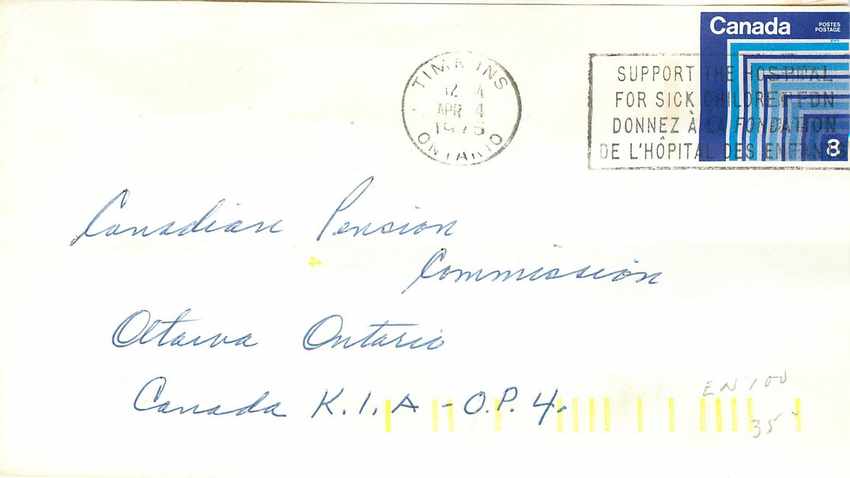 Canada POSTES
POSTAGE
8
TIMMINS
12 A
APR 4
1975
ONTARIO
SUPPORT THE HOSPITAL
FOR SICK CHILDREN FDN
DONNEZ À LA FONDATION
DE L'HÔPITAL DES ENFANTS
Canadian Pension
Commission
Ottawa Ontario
Canada K.1.A-O.P.4.
EN 100
35